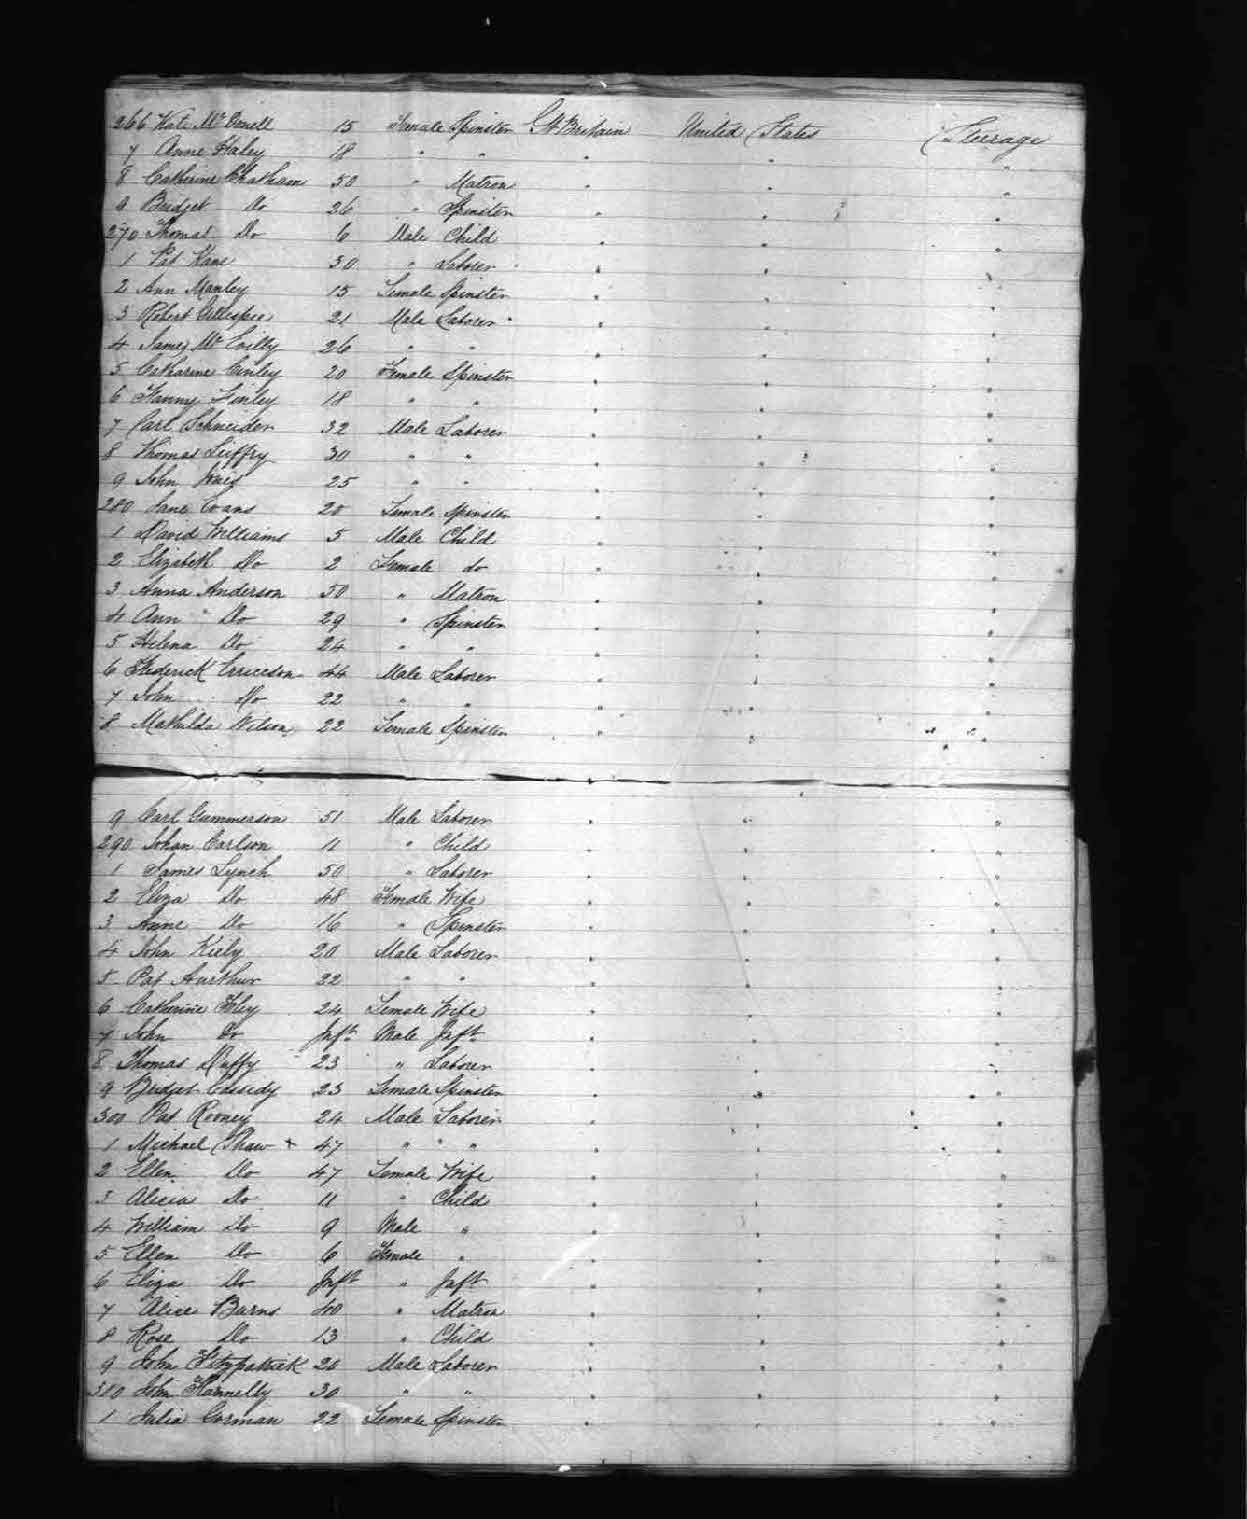 266 Kate McDonell 15 Female Spinster Gt Britain United States Steerage
7 Anne Haley 18 " " " " "
8 Catherine Chatham 50 " Matron " " "
9 Bridget Do 26 " Spinster " " "
270 Thomas Do 6 Male Child " " "
1 Pat Kane 30 " Laborer " " "
2 Ann Manley 15 Female Spinster " " "
3 Robert Gillespie 21 Male Laborer " " "
4 James Mc 26 " " " " "
5 Catharine 20 Female Spinster " " "
6 Fanny Finley 18 " " " " "
7 Carl Schneider 32 Male Laborer " " "
8 Thomas 30 " " " " "
9 John 25 " " " " "
280 Jane Evans 20 Female Spinster " " "
1 David Williams 5 Male Child " " "
2 Elizabeth Do 2 Female do " " "
3 Anna Anderson 50 " Matron " " "
4 Ann Do 29 " Spinster " " "
5 Helena Do 24 " " " " "
6 Frederick Erricson 44 Male Laborer " " "
7 John Do 22 " " " " "
8 Mathilda Wilson 22 Female Spinster " " "
9 Carl Gummerson 51 Male Laborer " " "
290 Johan Carlson 11 " Child " " "
1 James Lynch 50 " Laborer " " "
2 Eliza Do 48 Female Wife " " "
3 Anne Do 16 " Spinster " " "
4 John Kiely 20 Male Laborer " " "
5 Pat Aurthur 22 " " " " "
6 Catherine Foley 24 Female Wife " " "
7 John Do Inft Male Inft " " "
8 Thomas Duffy 23 " Laborer " " "
9 Bridget Cassidy 23 Female Spinster " " "
300 Pat Rooney 24 Male Laborer " " "
1 Michael Shaw + 47 " " " " "
2 Ellen Do 47 Female Wife " " "
3 Alicia Do 11 " Child " " "
4 William Do 9 Male " " " "
5 Ellen Do 6 Female " " " "
6 Eliza Do Inft " Inft " " "
7 Alice Barns 40 " Matron " " "
8 Rose Do 13 " Child " " "
9 John Fitzpatrick 20 Male Laborer " " "
310 John Hannelly 30 " " " " "
1 Julia Gorman 22 Female Spinster " " "